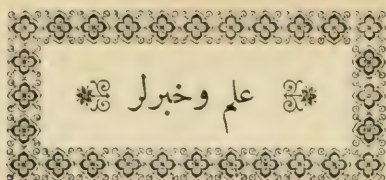 علم وخبرلر